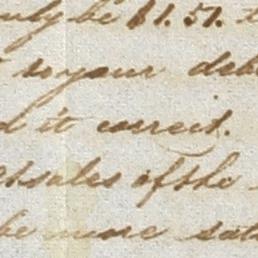 only be $1.51. t
to your deb
d it correct.
sales of the
be more sat